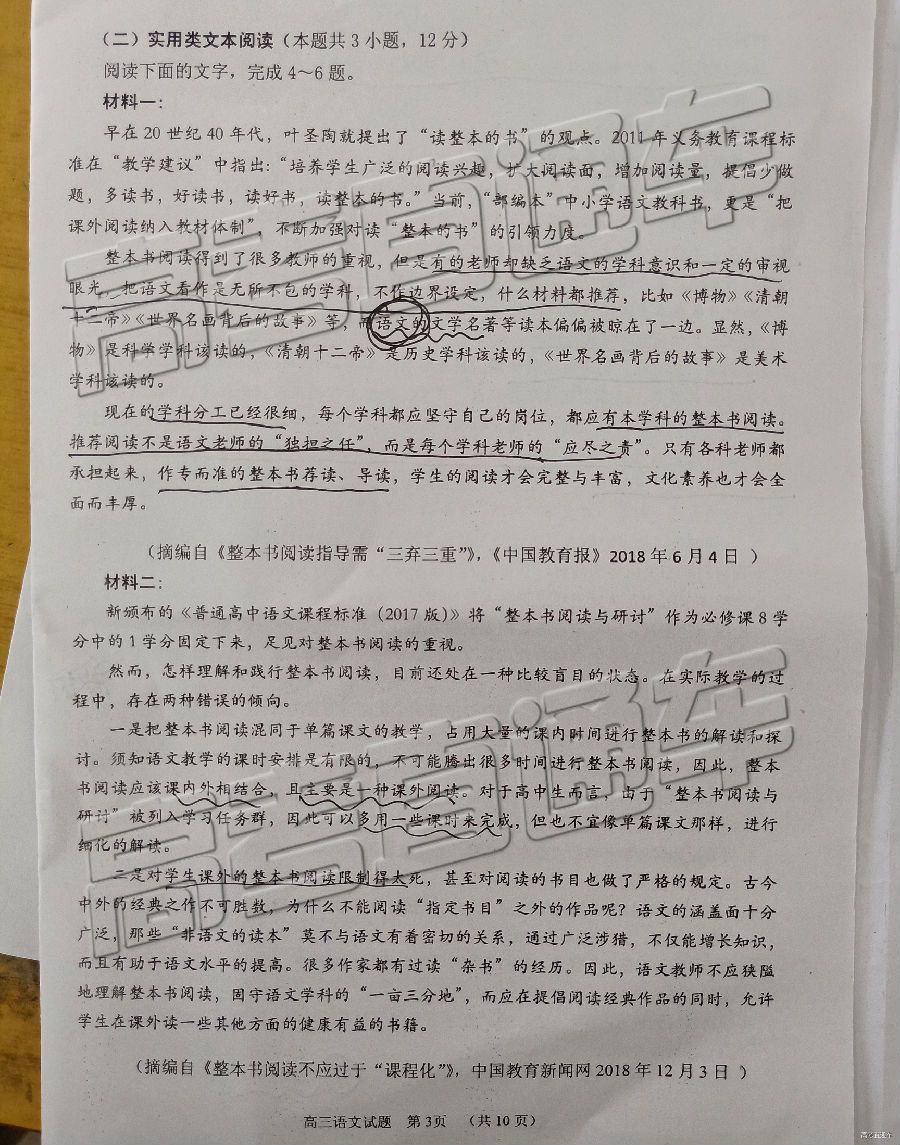 （二）实用类文本阅读（本题共 3 小题，12 分）
阅读下面的文字，完成 4～6 题。
材料一：
早在 20 世纪 40 年代，叶圣陶就提出了“读整本的书”的观点。2011 年义务教育课程标
准在“教学建议”中指出：“培养学生广泛的阅读兴趣，扩大阅读面，增加阅读量，提倡少做
题，多读书，好读书，读好书，读整本的书。”当前，“部编本”中小学语文教科书，更是“把
课外阅读纳入教材体制”，不断加强对读“整本的书”的引领力度。
整本书阅读得到了很多教师的重视，但是有的老师却缺乏语文的学科意识和一定的审视
眼光，把语文看作是无所不包的学科，不作边界设定，什么材料都推荐，比如《博物》《清朝
十二帝》《世界名画背后的故事》等，而语文的文学名著等读本偏偏被晾在了一边。显然，《博
物》是科学学科该读的，《清朝十二帝》是历史学科该读的，《世界名画背后的故事》是美术
学科该读的。
现在的学科分工已经很细，每个学科都应坚守自己的岗位，都应有本学科的整本书阅读。
推荐阅读不是语文老师的“独担之任”，而是每个学科老师的“应尽之责”。只有各科老师都
承担起来，作专而准的整本书荐读、导读，学生的阅读才会完整与丰富，文化素养也才会全
面而丰厚。
（摘编自《整本书阅读指导需“三弃三重”》，《中国教育报》2018 年 6 月 4 日 ）
材料二：
新颁布的《普通高中语文课程标准（2017 版）》将“整本书阅读与研讨”作为必修课 8 学
分中的 1 学分固定下来，足见对整本书阅读的重视。
然而，怎样理解和践行整本书阅读，目前还处在一种比较盲目的状态。在实际教学的过
程中，存在两种错误的倾向。
一是把整本书阅读混同于单篇课文的教学，占用大量的课内时间进行整本书的解读和探
讨。须知语文教学的课时安排是有限的，不可能腾出很多时间进行整本书阅读，因此，整本
书阅读应该课内外相结合，且主要是一种课外阅读。对于高中生而言，由于“整本书阅读与
研讨”被列入学习任务群，因此可以多用一些课时来完成，但也不宜像单篇课文那样，进行
细化的解读。
二是对学生课外的整本书阅读限制得太死，甚至对阅读的书目也做了严格的规定。古今
中外的经典之作不可胜数，为什么不能阅读“指定书目”之外的作品呢？语文的涵盖面十分
广泛，那些“非语文的读本”莫不与语文有着密切的关系，通过广泛涉猎，不仅能增长知识，
而且有助于语文水平的提高。很多作家都有过读“杂书”的经历。因此，语文教师不应狭隘
地理解整本书阅读，固守语文学科的“一亩三分地”，而应在提倡阅读经典作品的同时，允许
学生在课外读一些其他方面的健康有益的书籍。
（摘编自《整本书阅读不应过于“课程化”》，中国教育新闻网 2018 年 12 月 3 日 ）
高三语文试题 第 3页 （共 10 页）
高考直通车
高考直通车